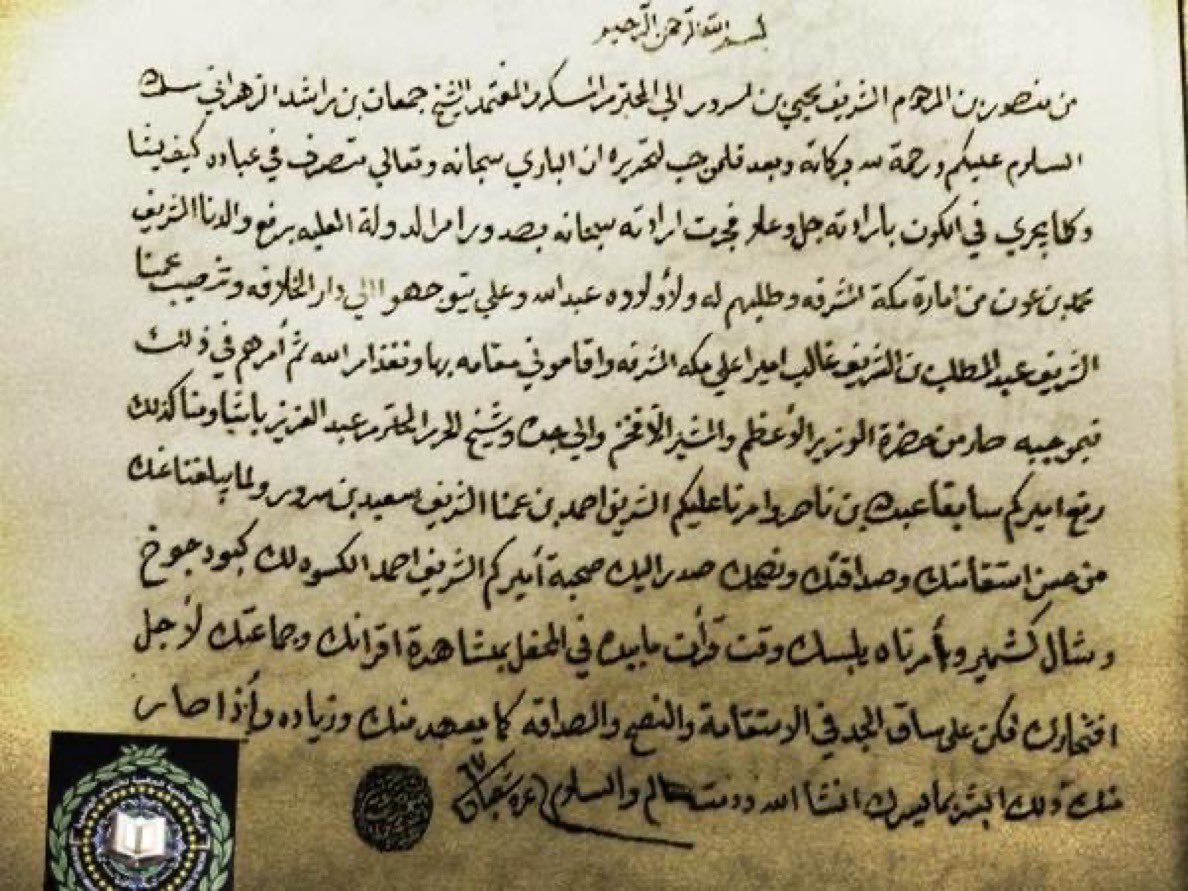 بسم الله الرحمن الرحيم
من منصور بن المرحوم الشريف يحيى بن سرور الى المحترم المكرم والمعتمد الشيخ جمعان بن راشد الزهراني سلك
السلام عليكم ورحمة الله وبركاته وبعد فلموجب لتحريره ان الباري سبحانه وتعالى متصرف في عباده كيف يشا
وكما يجري في الكون بارادته جل وعلا فجرت ارادته سبحانه بصدور امر الدولة العليه برفع والدنا الشريف
محمد بن عون من امارة مكة المشرفه وطلبهم له ولأولاده عبد الله وعلي يتوجهوا الى دار الخلافه وتنصيب عمنا
الشريف عبد المطلب بن الشريف غالب اميرا على مكه المشرفه واقاموه في مقامه بها ونفذ امر الله ثم أمرهم في ذلك
فبموجبه صار من حضرة الوزير الأعظم والمشير الأفخم والي جده وشيخ الحرم المحترم عبد العزيز باشا ومنا كذلك
رفع اميركم سابقا عبدك بن ناصر وامرنا عليكم الشريف احمد بن عمنا الشريف سعيد بن سرور ولما يبلغنا عنك
من حسن استقامتك وصداقتك ونصحك صدر اليك صحبة أميركم الشريف احمد الكسوه لك كبود جوخ
وشال كشمير وأمرناه يلبسك وقت قرأت مابيده في المحفل بمشاهدة اقرانك وجماعتك لأجل
افتخارك فكن على ساق الجد في الاستقامة والنصح والصداقه كما يعهد منك وزياده وأذا صار
منك ذلك ابشر بما يسرك انشا الله ودمت سالم والسلام غرة شعبان ٦٧